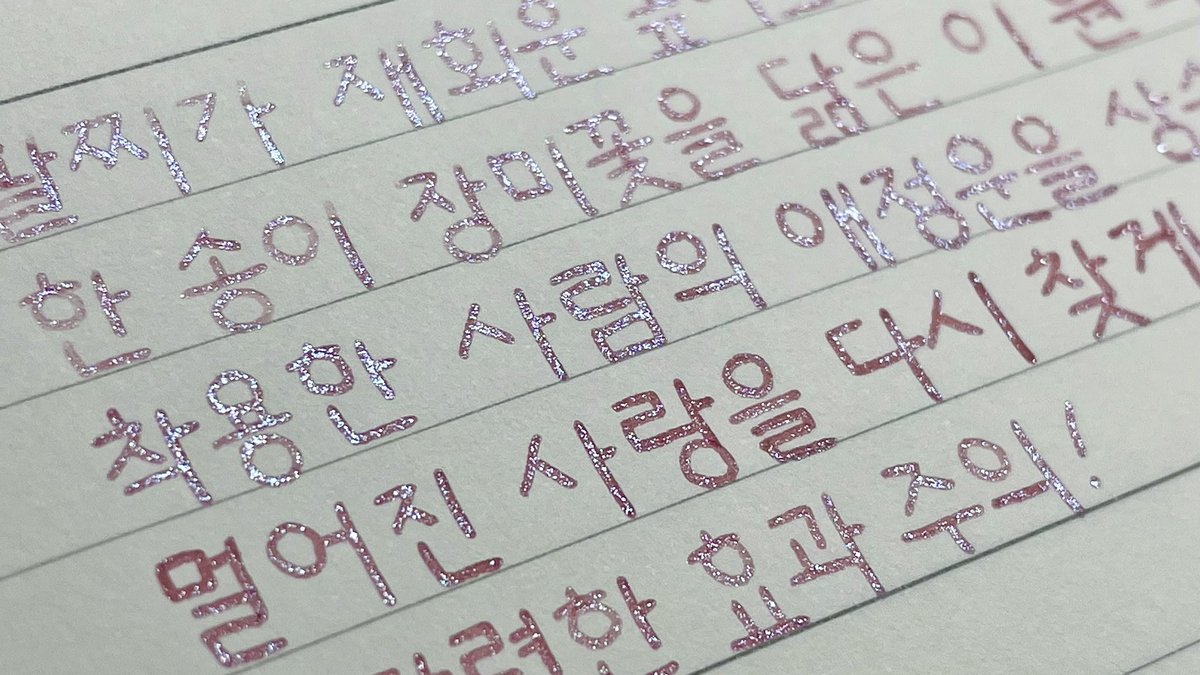 팔찌가 재화운
한 송이 장미꽃을 닮은 이
착용한 사람의 애정운을
멀어진 사랑을 다시 찾게
강력한 효과 주의!